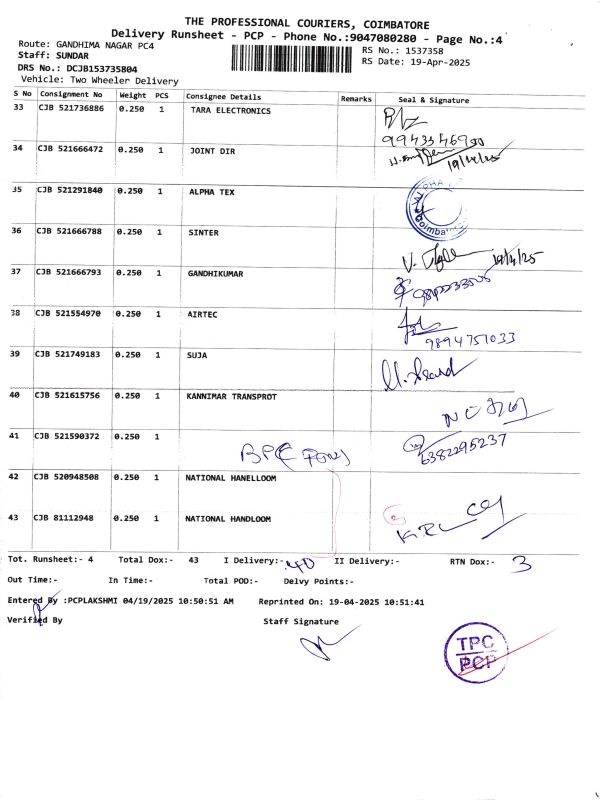 THE PROFESSIONAL COURIERS, COIMBATORE
Delivery Runsheet - PCP - Phone No.:9047080280 - Page No.:4
Route: GANDHIMA NAGAR PC4 RS No.: 1537358
Staff: SUNDAR RS Date: 19-Apr-2025
DRS No.: DCJB153735804
Vehicle: Two Wheeler Delivery
S No Consignment No Weight PCS Consignee Details Remarks Seal & Signature
33 CJB 521736886 0.250 1 TARA ELECTRONICS
34 CJB 521666472 0.250 1 JOINT DIR 19/4/25
35 CJB 521291840 0.250 1 ALPHA TEX ALPHA
Coimbat
36 CJB 521666788 0.250 1 SINTER
19/4/25
37 CJB 521666793 0.250 1 GANDHIKUMAR
38 CJB 521554970 0.250 1 AIRTEC
9894751033
39 CJB 521749183 0.250 1 SUJA
40 CJB 521615756 0.250 1 KANNIMAR TRANSPROT
41 CJB 521590372 0.250 1
6382295237
42 CJB 520948508 0.250 1 NATIONAL HANELLOOM
43 CJB 81112948 0.250 1 NATIONAL HANDLOOM
Tot. Runsheet:- 4 Total Dox:- 43 I Delivery:- 40 II Delivery:- RTN Dox:- 3
Out Time:- In Time:- Total POD:- Delvy Points:-
Entered By :PCPLAKSHMI 04/19/2025 10:50:51 AM Reprinted On: 19-04-2025 10:51:41
Verified By Staff Signature
TPC
PCP